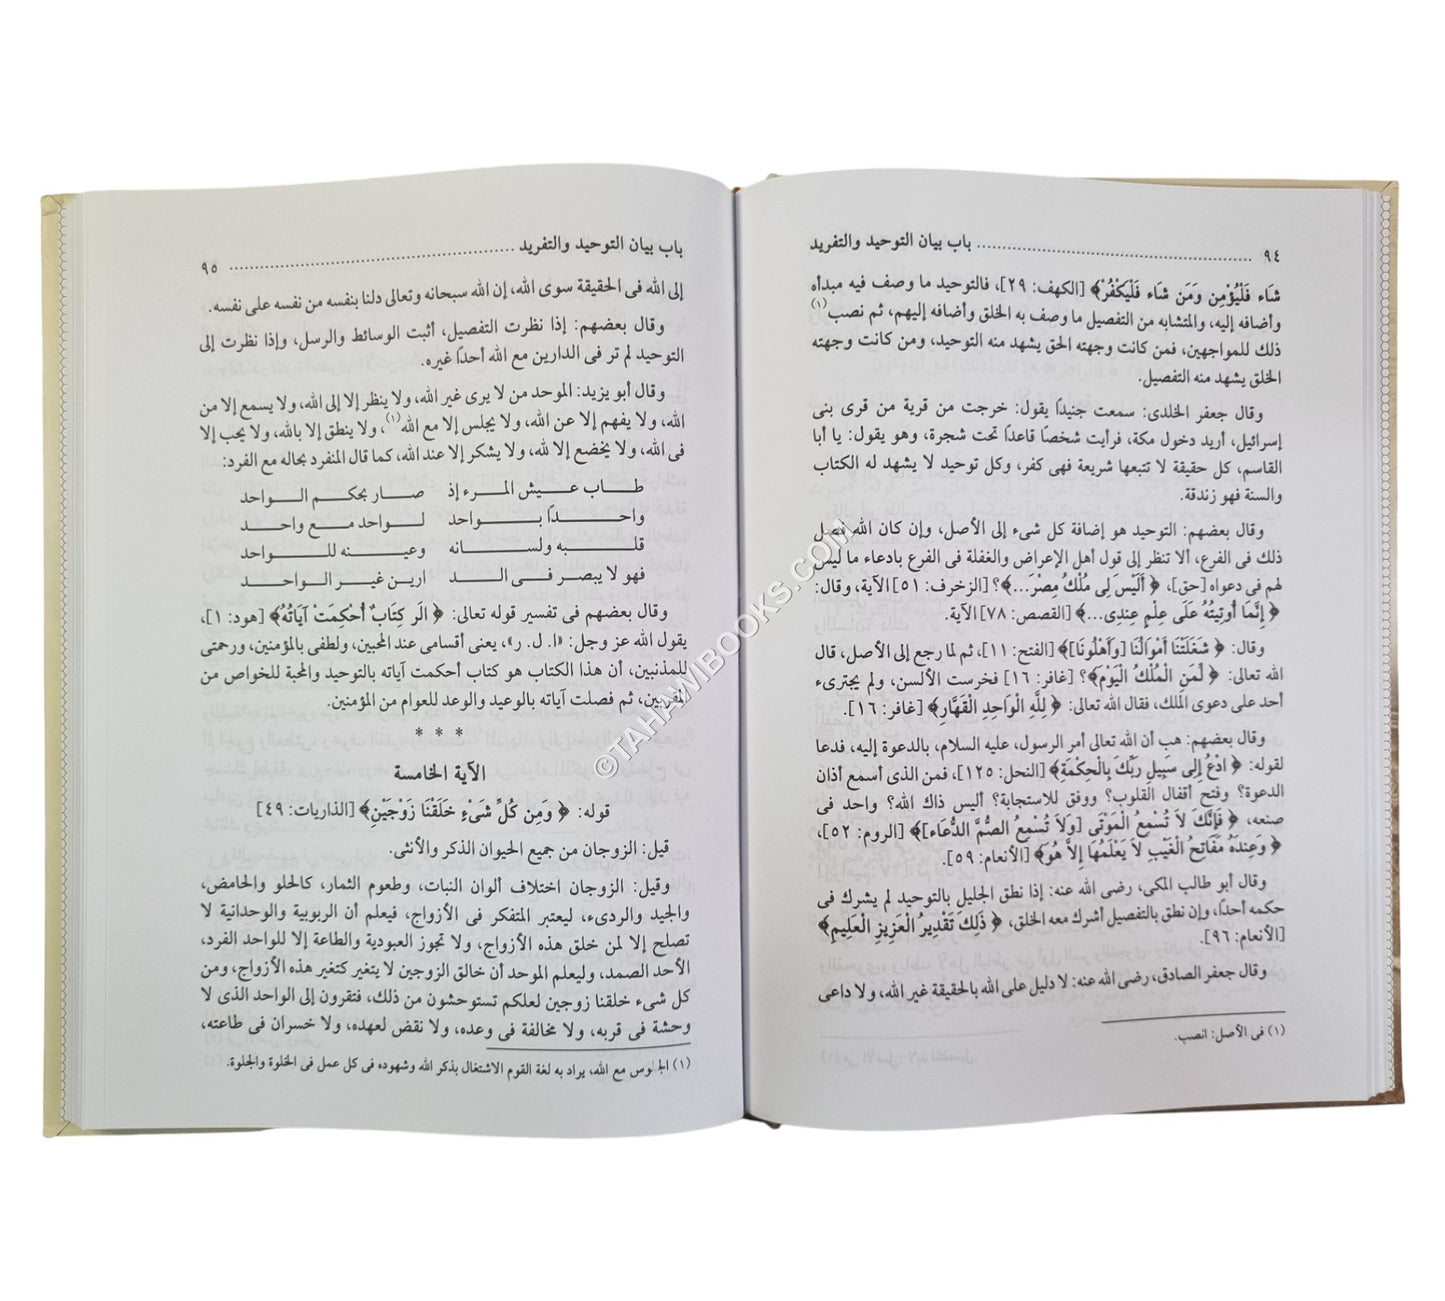 ٩٤ ........................................ باب بيان التوحيد والتفريد
شَاء فَلْيُؤْمِن وَمَن شَاء فَلْيَكْفُرْ﴾ [الكهف: ٢٩]، فالتوحيد ما وصف فيه مبدأه
وأضافه إليه، والمتشابه من التفصيل ما وصف به الخلق وأضافه إليهم، ثم نصب(١)
ذلك للمواجهين، فمن كانت وجهته الحق يشهد منه التوحيد، ومن كانت وجهته
الخلق يشهد منه التفصيل.
وقال جعفر الخلدى: سمعت جنيدًا يقول: خرجت من قرية من قرى بنى
إسرائيل، أريد دخول مكة، فرأيت شخصًا قاعدًا تحت شجرة، وهو يقول: يا أبا
القاسم، كل حقيقة لا تتبعها شريعة فهى كفر، وكل توحيد لا يشهد له الكتاب
والسنة فهو زندقة.
وقال بعضهم: التوحيد هو إضافة كل شىء إلى الأصل، وإن كان الله فصل
ذلك فى الفرع، ألا تنظر إلى قول أهل الإعراض والغفلة فى الفرع بادعاء ما ليس
لهم فى دعواه [حق]، ﴿ أَلَيْسَ لِى مُلْكُ مِصْرَ...﴾؟ [الزخرف: ٥١] الآية، وقال:
﴿ إِنَّمَا أُوتِيتُهُ عَلَى عِلْمٍ عِندِى...﴾ [القصص: ٧٨] الآية.
وقال: ﴿ شَغَلَتْنَا أَمْوَالُنَا [وَأَهْلُونَا]﴾ [الفتح: ١١]، ثم لما رجع إلى الأصل، قال
الله تعالى: ﴿ لِّمَنِ الْمُلْكُ الْيَوْمَ﴾؟ [غافر: ١٦] فخرست الألسن، ولم يجترىء
أحد على دعوى الملك، فقال الله تعالى: ﴿ لِلَّهِ الْوَاحِدِ الْقَهَّارِ﴾ [غافر: ١٦].
وقال بعضهم: هب أن الله تعالى أمر الرسول، عليه السلام، بالدعوة إليه، فدعا
لقوله: ﴿ ادْعُ إِلَى سَبِيلِ رَبِّكَ بِالْحِكْمَةِ﴾ [النحل: ١٢٥]، فمن الذى أسمع أذان
الدعوة؟ وفتح أقفال القلوب؟ ووفق للاستجابة؟ أليس ذاك الله؟ واحد فى
صنعه، ﴿ فَإِنَّكَ لاَ تُسْمِعُ الْمَوْتَى [وَلاَ تُسْمِعُ الصُّمَّ الدُّعَاء]﴾ [الروم: ٥٢]،
﴿ وَعِندَهُ مَفَاتِحُ الْغَيْبِ لاَ يَعْلَمُهَا إِلاَّ هُوَ﴾ [الأنعام: ٥٩].
وقال أبو طالب المكى، رضى الله عنه: إذا نطق الجليل بالتوحيد لم يشرك فى
حكمه أحدًا، وإن نطق بالتفصيل أشرك معه الخلق، ﴿ ذَلِكَ تَقْدِيرُ الْعَزِيزِ الْعَلِيمِ﴾
[الأنعام: ٩٦].
وقال جعفر الصادق، رضى الله عنه: لا دليل على الله بالحقيقة غير الله، ولا داعى
(١) فى الأصل: انصب.
باب بيان التوحيد والتفريد ........................................ ٩٥
إلى الله فى الحقيقة سوى الله، إن الله سبحانه وتعالى دلنا بنفسه من نفسه على نفسه.
وقال بعضهم: إذا نظرت التفصيل، أثبت الوسائط والرسل، وإذا نظرت إلى
التوحيد لم تر فى الدارين مع الله أحدًا غيره.
وقال أبو يزيد: الموحد من لا يرى غير الله، ولا ينظر إلا إلى الله، ولا يسمع إلا من
الله، ولا يفهم إلا عن الله، ولا يجلس إلا مع الله(١)، ولا ينطق إلا بالله، ولا يحب إلا
فى الله، ولا يخضع إلا لله، ولا يشكر إلا عند الله، كما قال المنفرد بحاله مع الفرد:
طــاب عــيش المــرء إذ صــار بحكم الــواحد
واحــدًا بــواحد لــواحد مــع واحــد
قلــبه ولســانه وعيــنه للــواحد
فهو لا يبصر فــى الــد ارين غير الــواحــد
وقال بعضهم فى تفسير قوله تعالى: ﴿ الَر كِتَابٌ أُحْكِمَتْ آيَاتُهُ﴾ [هود: ١]،
يقول الله عز وجل: «ا. ل. ر»، يعنى أقسامى عند المحبين، ولطفى بالمؤمنين، ورحمتى
للمذنبين، أن هذا الكتاب هو كتاب أحكمت آياته بالتوحيد والمحبة للخواص من
المقربين، ثم فصلت آياته بالوعيد والوعد للعوام من المؤمنين.
* * *
الآية الخامسة
قوله: ﴿ وَمِن كُلِّ شَىْءٍ خَلَقْنَا زَوْجَيْنِ﴾ [الذاريات: ٤٩]
قيل: الزوجان من جميع الحيوان الذكر والأنثى.
وقيل: الزوجان اختلاف ألوان النبات، وطعوم الثمار، كالحلو والحامض،
والجيد والردىء، ليعتبر المتفكر فى الأزواج، فيعلم أن الربوبية والوحدانية لا
تصلح إلا لمن خلق هذه الأزواج، ولا تجوز العبودية والطاعة إلا للواحد الفرد،
الأحد الصمد، وليعلم الموحد أن خالق الزوجين لا يتغير كتغير هذه الأزواج، ومن
كل شىء خلقنا زوجين لعلكم تستوحشون من ذلك، فتقرون إلى الواحد الذى لا
وحشة فى قربه، ولا مخالفة فى وعده، ولا نقض لعهده، ولا خسران فى طاعته،
(١) الجلوس مع الله، يراد به لغة القوم الاشتغال بذكر الله وشهوده فى كل عمل فى الخلوة والجلوة.
©TAHAWIBOOKS.COM